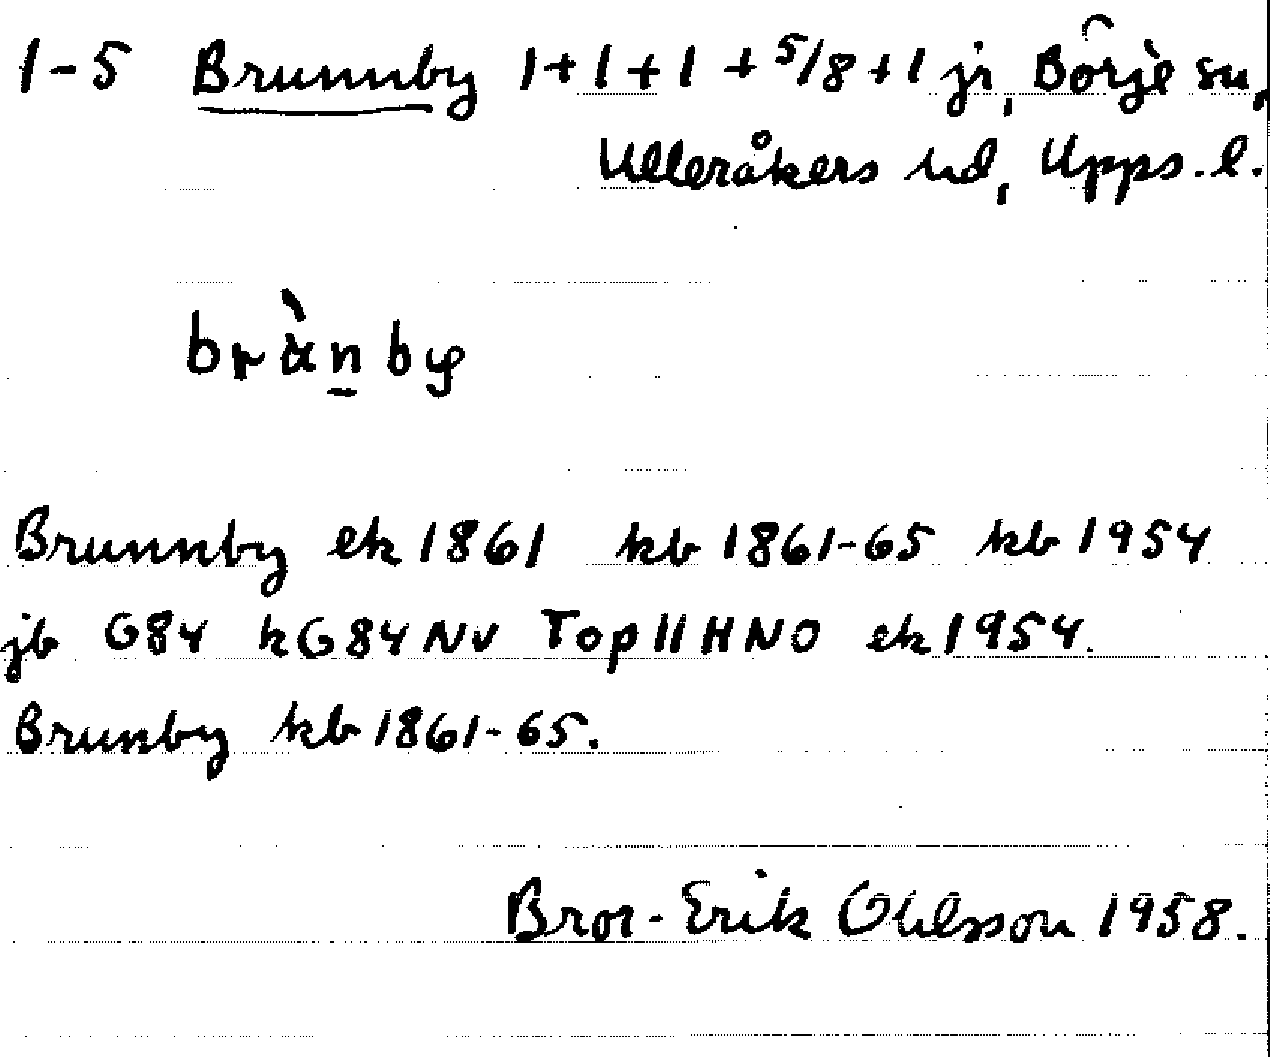 1-5 Brunnby 1+1+1+5/8+1 jr, Börje sn,
Ulleråkers hd, Upps. l.
brànby
Brunnby ek 1861 kb 1861-65 kb 1954
jb G84 kG84NV Top II HNO ek 1954.
Brunby kb 1861-65.
Bror-Erik Ohlsson 1958.